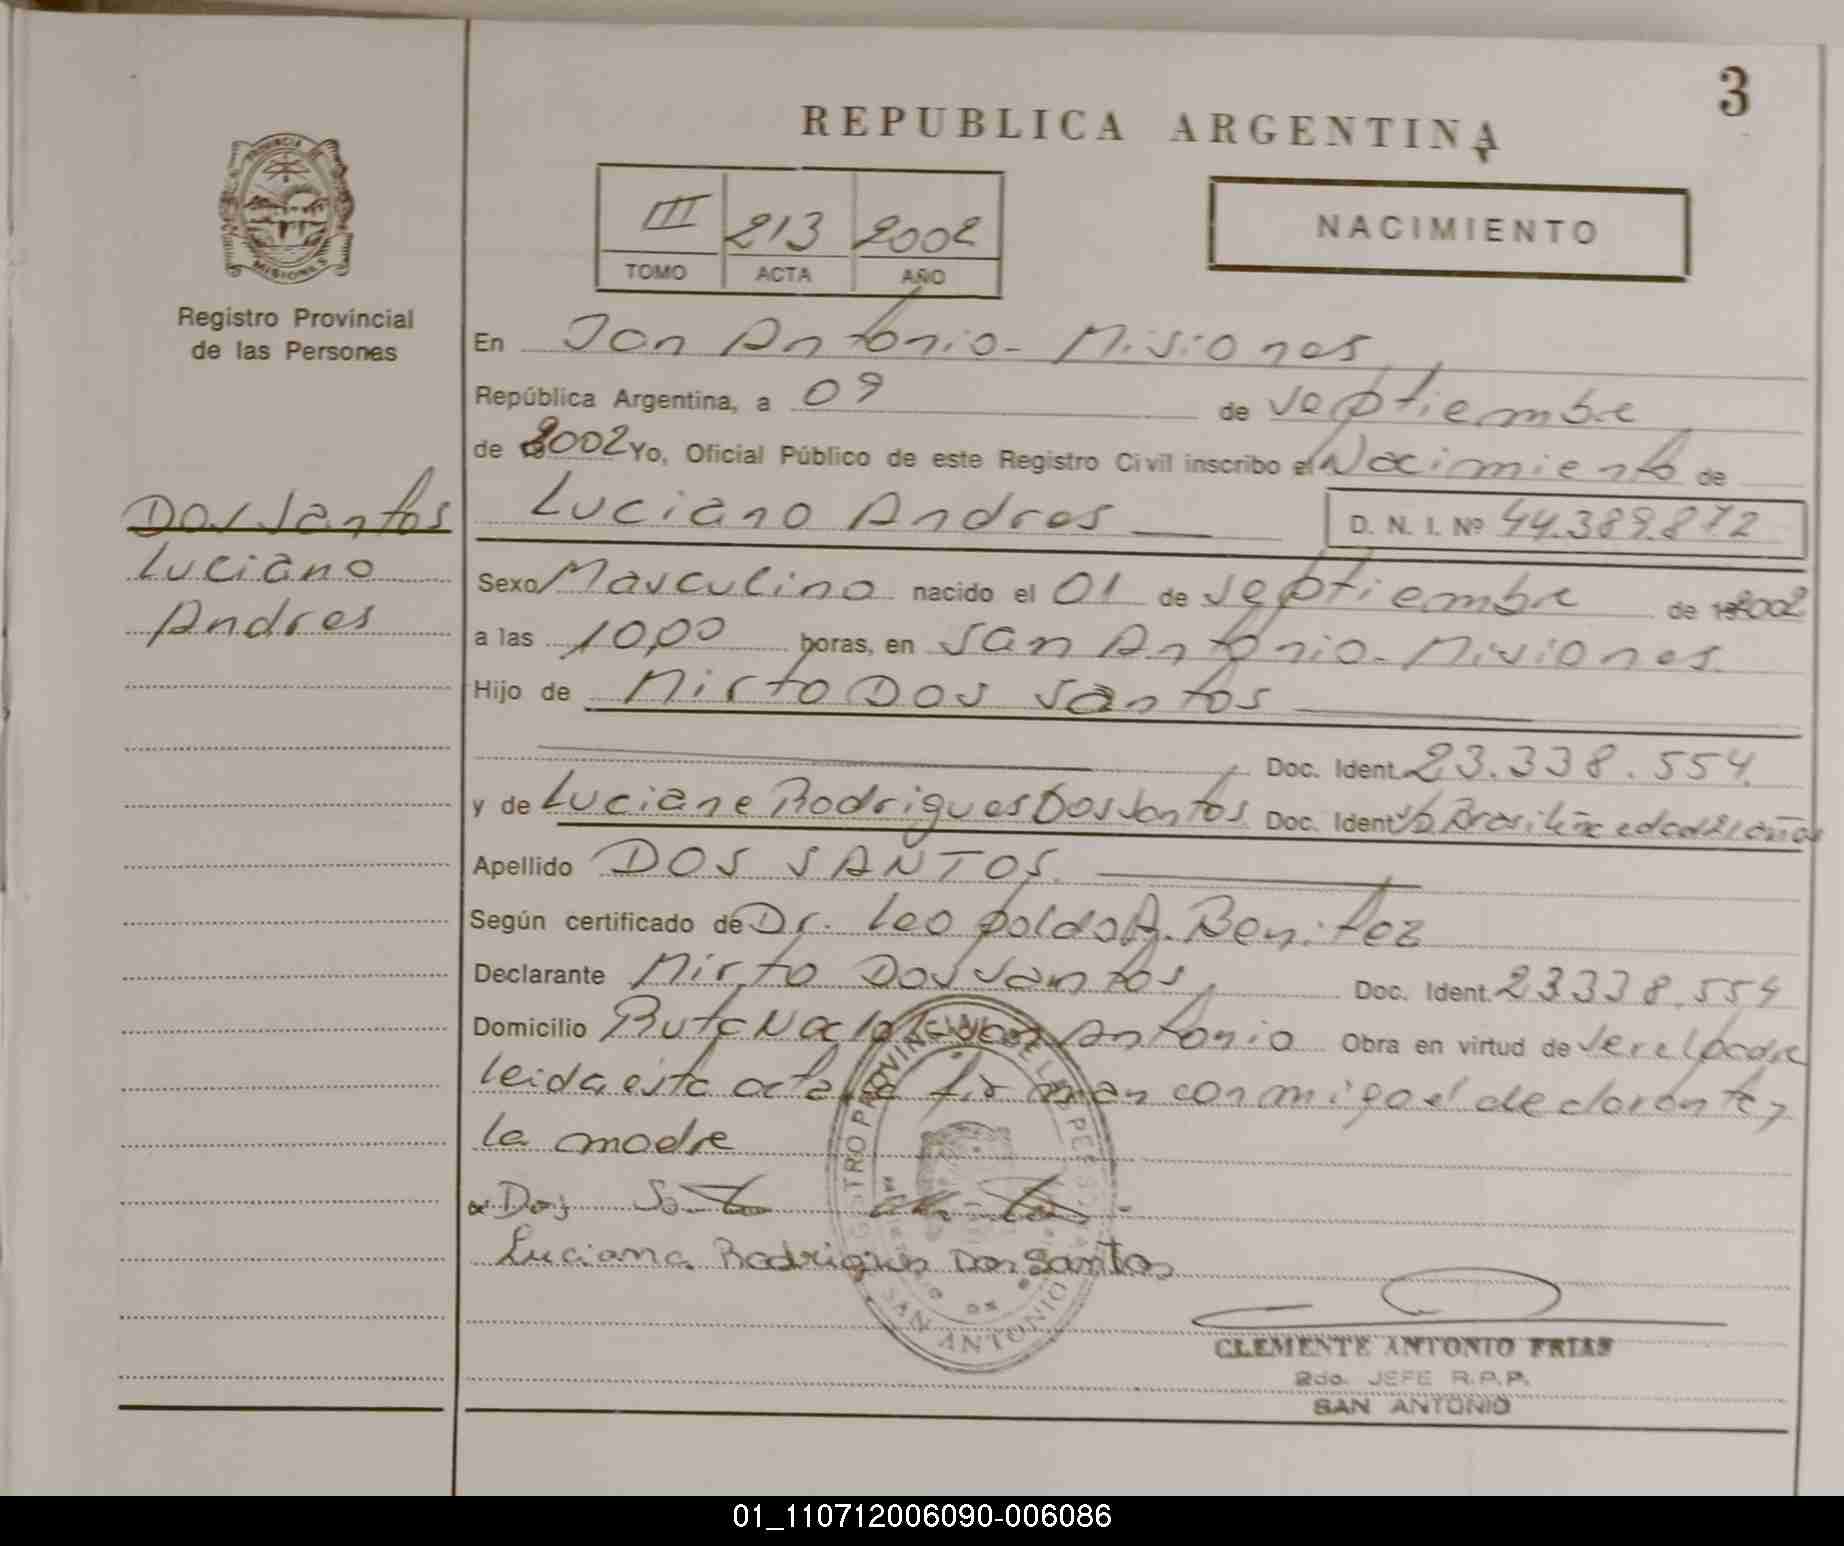 3
REPUBLICA ARGENTINA
PROVINCIA DE
MISIONES
III 213 2002
TOMO ACTA AÑO
NACIMIENTO
Registro Provincial
de las Personas
En San Antonio - Misiones
República Argentina, a 09 de septiembre
de 2002 Yo, Oficial Público de este Registro Civil inscribo el Nacimiento de
Dos Santos
Luciano
Andres
Luciano Andres D. N. I. Nº 44.389.872
Sexo Masculino nacido el 01 de septiembre de 2002
a las 10,00 horas, en San Antonio - Misiones.
Hijo de Mirto Dos Santos
Doc. Ident. 23.338.554.
y de Luciane Rodrigues Dos Santos Doc. Ident. Brasileña edad años
Apellido DOS SANTOS.
Según certificado de Dr. Leopoldo A. Benitez
Declarante Mirto Dos Santos Doc. Ident. 23338.554
Domicilio Ruta Nac San Antonio Obra en virtud de ser el padre
leida esta acta la firman conmigo el declarante y
la madre
Dos
Luciana Rodrigues Dos Santos
SAN ANTONIO
CLEMENTE ANTONIO FRIAS
2do. JEFE R.P.P.
SAN ANTONIO
01_110712006090-006086